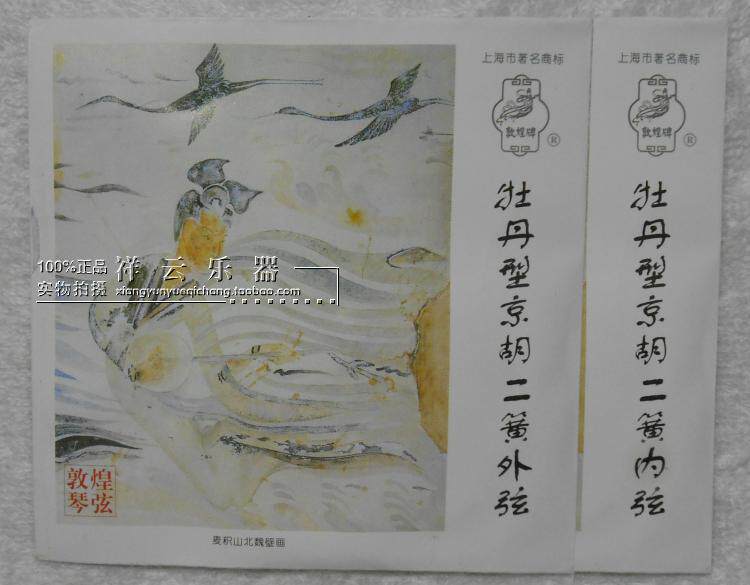 上海市著名商标
敦煌牌
®
牡丹型京胡二簧外弦
上海市著名商标
敦煌牌
®
牡丹型京胡二簧内弦
100%正品
实物拍摄
祥云乐器
xiangyunyueqichang.taobao.com
敦煌
琴弦
麦积山北魏壁画